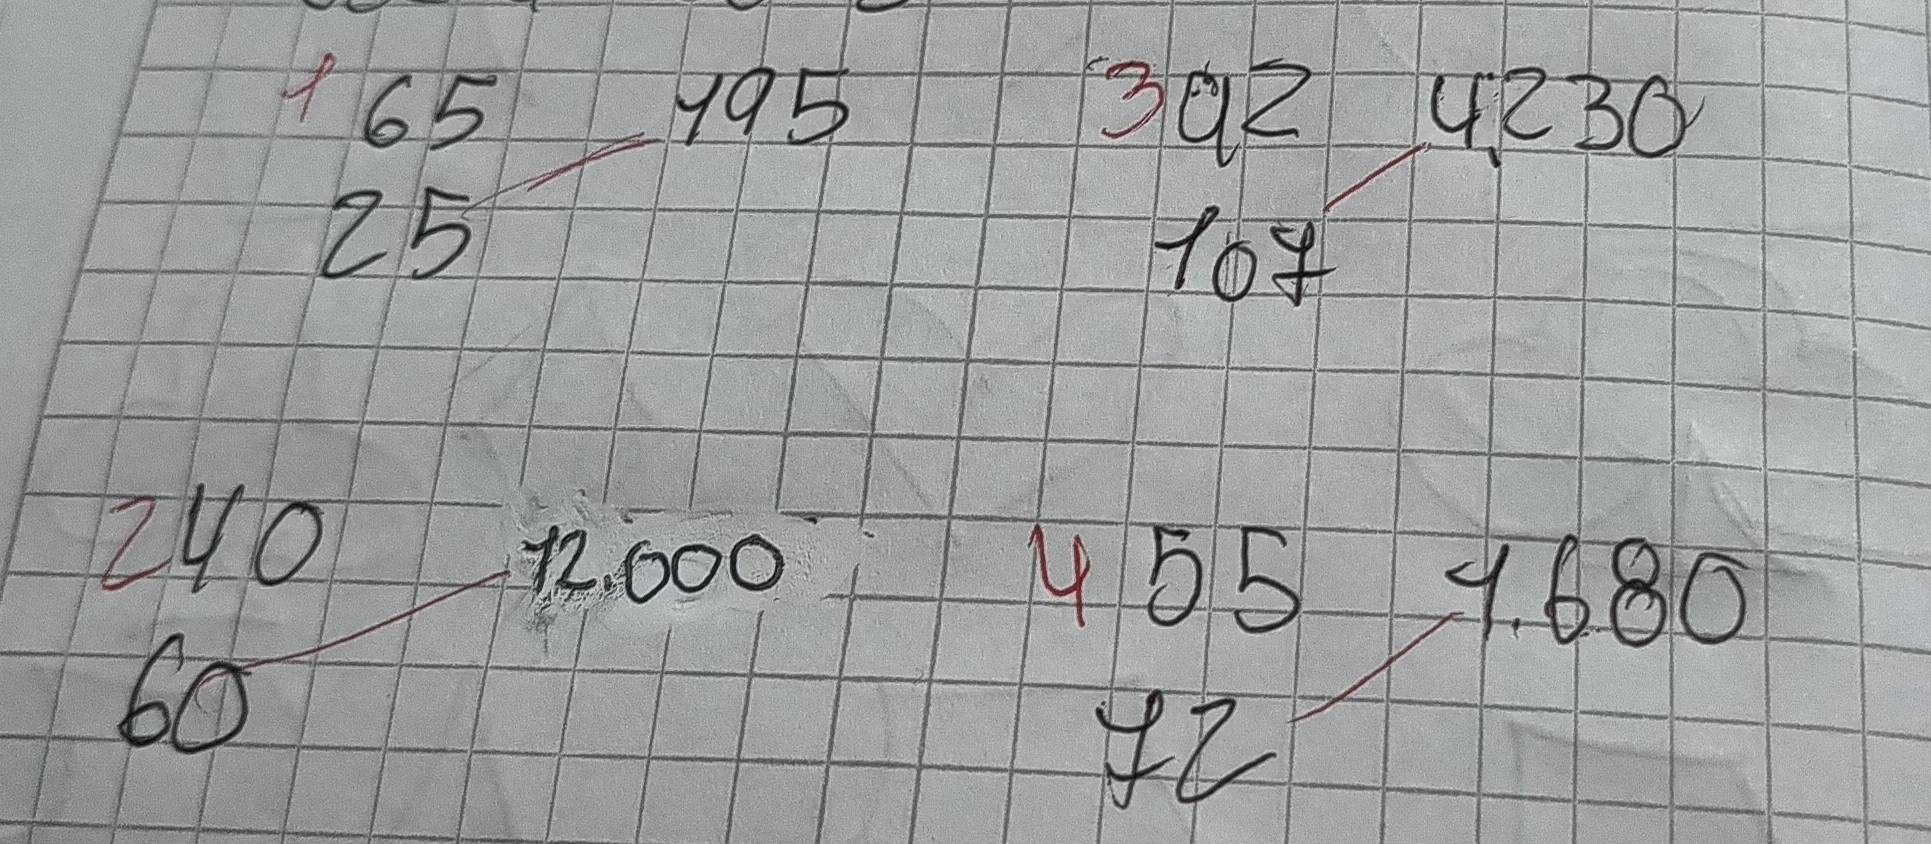 1 65 195
25
3 92 4,230
107
2 40 12.000
60
4 55 1.680
72